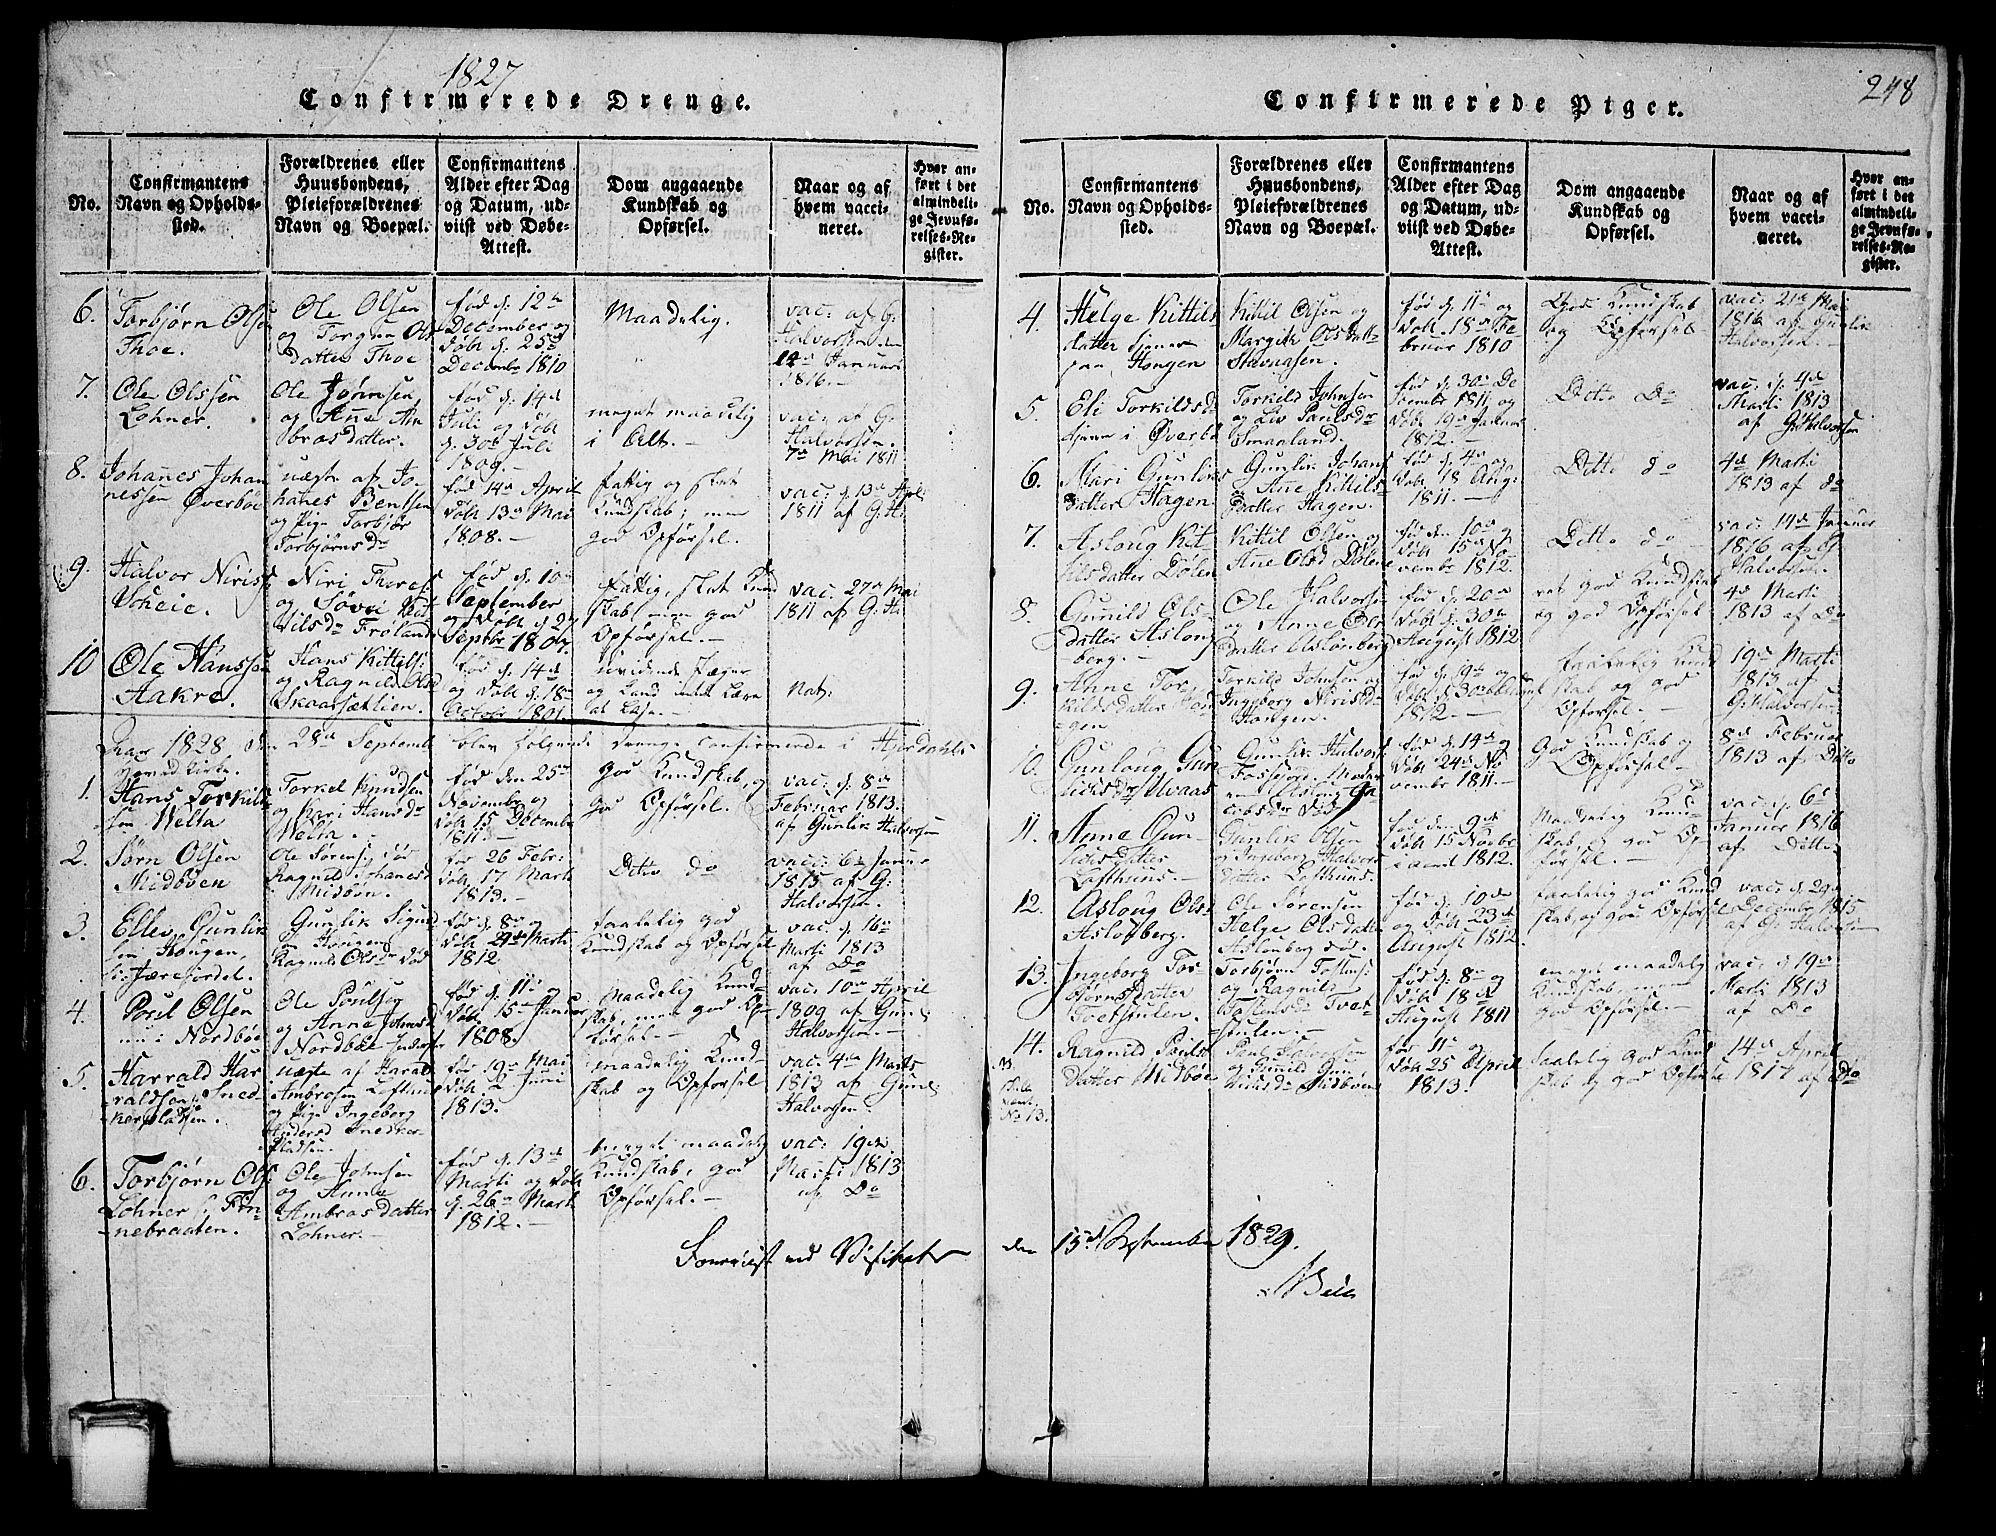 1827
Confirmerede Drenge.
No.
Confirmantens
Navn og Opholds-
sted.
Forældrenes eller
Huusbondens,
Pleieforældrenes
Navn og Boepæl.
Confirmantens
Alder efter Dag
og Datum, ud-
viist ved Døbe-
Attest.
Dom angaaende
Kundskab og
Opførsel.
Naar og af
hvem vacci-
neret.
Hvor an-
ført i det
almindeli-
ge Jevnfø-
relses-Re-
gister.
6.
Torbjørn Olsen
Thoe.
Ole Olsen
og Torgun Ols
datter Thoe
fød d: 12te
December og
døbt d: 25de
Decembr 1810
Maadelig.
vac: af G:
Halvorsen
14de Januar
1816.-
7.
Ole Olssen
Lohner.
Ole Johnsen
og Anne Am
brosdatter.
fød d: 14de
Juli og døbt
d: 30te Juli
1809.-
meget maadelig
i Alt.-
vac: af G:
Halvorsen.
7de Mai 1811
8.
Johannes Johan
nessen Øverbøe
uægte af Jo-
hanes Bentsen
og Pige Torbjør
Torbjørnsdr
fød 14de April
døbt 13de Mai
1808.-
fattig og slet
Kundskab; men
god Opførsel.-
vac: d: 13de Apl:
1811 af G: H:
9.
Halvor Niriss
Scheie.
Niri
og Søvei Kit
tilsdr Froland
fød d: 10
September
og døbt d: 27
Septbr 1807.
fattig, slet Kund
skab men god
Opførsel.-
vac: 27de Mai
1811 af G: H:
10
Ole Hanssen
Aakre.
Hans Kittils:
og Ragnild Olsd
Skaarsætlien.
fød d: 14de
og døbt d: 18de
Octobr 1801.
og Land
at Læse.-
Nat:
Aar 1828, den 28de September blev følgende Drenge confirmerede i Hjerdahls
1.
Hans Torkild
sen Welta
Torkel Knudsen
og Kari Hansdr
Welta.-
fød den 25de
Novembr og
døbt 15 Decembr
1811.-
god Kundskab, og
god Opførsel.
vac: d: 8de
Februar 1813.
af Gunlik Halvorsen
2.
Sørn Olsen
Midbøen
Ole Sørensen
Ragnild Johanesd
Midbøn.
fød 26 Febr:
døbt 17 Marti
1813.-
Ditto do
vac: 6te Januar
1815 af G:
Halvorsen.
3.
Ellev Gunlik
sen Hougen,
Gunlik Sigurd
sen Hougen
Ragnild Olsdr død
fød d: 8de og
døbt 29de Marti
1812
taalelig god
Kundskab og Opførsel
vac: d: 16de
Marti 1813
af Do
4.
Poul Olsen
nu i Nordbøe
Ole Poulsen
og Anne Johnsd
Nordbøe
fød d: 11te og
døbt 15de Januar
1808.
Maadelig Kund-
skab, men god Op-
førsel.-
vac: 10de April
1809 af Gun:
Halvorsen.-
5.
Harrald Har
raldsen Sned
kerpladsen.
uægte af Harald
Ambrosen Lofthuus
og Pige Ingeborg
Andersd Snedker-
pladsen.
fød 19de Mai
døbt Juni
1813.-
maadelig Kund-
skab og Opførsel
vac: 4de Marts
1813 af Gun:
Halvorsen.
6.
Torbjørn Ols:
Lohner i Fin-
nebraaten.
Ole Johnsen
og Anne
Ambrosdatter
Lohner.-
fød d: 13de
Marti og døbt
d: 26de Marti
1812.-
meget maadelig
Kundskab, god
Opførsel.-
vac: 19de
Marti 1813
af Do
248
Confirmerede Piger.
No.
Confirmantens
Navn og Opholds-
sted.
Forældrenes eller
Huusbondens,
Pleieforældrenes
Navn og Boepæl.
Confirmantens
Alder efter Dag
og Datum, ud-
viist ved Døbe-
Attest.
Dom angaaende
Kundskab og
Opførsel.
Naar og af
hvem vacci-
neret.
Hvor an-
ført i det
almindeli-
ge Jevnfø-
relses-Re-
gister.
4.
Helge Kittils
datter tjener
paa Hougen
Kittil Olsen og
Margith Olsdatt
Stavaasen.
fød d: 11te
døbt 18de Fe
bruar 1810
Kundskab
og Opførsel
vac: 21de Mai
1816 af Gunlik
Halvorsen.-
5.
Eli Torkildsd
tjener i Øverbø
Torkild Johnsen
og Liv Paulsdr
Smaaland.
fød d: 30de De
cembr 1811 og
døbt 19de Januar
1812.-
Ditto Do
vac: d: 4de
Marti 1813
af G: Halvorsen
6.
Mari Gunliks
datter Hagen
Gunlik Johans
og Ane Kittils-
datter Hagen.
fød d: 4de og
døbt 18 Aug:
1811.-
Ditto do
4de Marti
1813 af do
7.
Aslaug Kit-
tilsdatter Dølen
Kittil Olsen og
Ane Olsd Dølen
fød den 10de og
døbt 15de No-
vembr 1812.
Ditto do
vac: 14de Januar
1816 af G:
Halvorsen.
8.
Gunild Ols-
datter Aslong
berg.-
Ole Halvorsen
og Anne Ols
datter Aslonberg
fød d: 20de
døbt d: 30te
August 1812
ret god Kundskab
og god Opførsel
4de Marti
1813 af Do
9.
Anne Tor
kildsdatter Hou
gen
Torkild Johnsen og
Ingeborg Nirisdr
Hougen.
fød d: 19de og
døbt d: 30te
1812.-
taalelig Kund
skab og god
Opførsel.-
19de Marti
1813 af
G: Halvorsen
10.
Gunloug Gun
liksdr Uvaas
Gunlik Halvors
Fossejore. Moder
en Aslong Ja
cobsdr død
fød d: 14de og
døbt 24de No
vembr 1811.-
god Kundskab og
Opførsel-
8de Februar
1813 af Ditto
11.
Anne Gun
liksdatter
Lofthuus.-
Gunlik Olsen
og Ingeborg Halvors
datter Lofthuus.
fød den 9de
døbt 15 Novbr
1812.
Maadelig Kund-
skab, og god Op-
førsel.-
vac: d: 6te
Januar 1816
af Ditto
12.
Aslong Ols:
Aslonberg.
Ole Sørensen
Helge Olsdatter
Aslonberg død.
fød d: 10de
og døbt 23de
August 1812.
taalelig god Kund
skab og god Opførsel
vac: d: 29de
Decembr 1815
af G: Halvorsen
13.
Ingeborg Tor-
bjørnsdatter
Tvetstulen.
Torbjørn Tostens:
og Ragnild
Tostensdr Tvet-
stulen.-
fød d: 8de og
døbt 18de
August 1811
meget maadelig
Kundskab, men
god Opførsel.-
vac: d: 19de
Marti 1813
af Do
14.
Ragnild Pauls
datter Midbøe
Paul Halvorsen
og Gunild Gun
liksdr Midbøen
fød 11te og
døbt 25 April
1813.-
taalelig god Kund
skab og god Opførsel
14de April
1817 af Do
No 13.
Foreviist ved Visitats
den 15de September 1829.